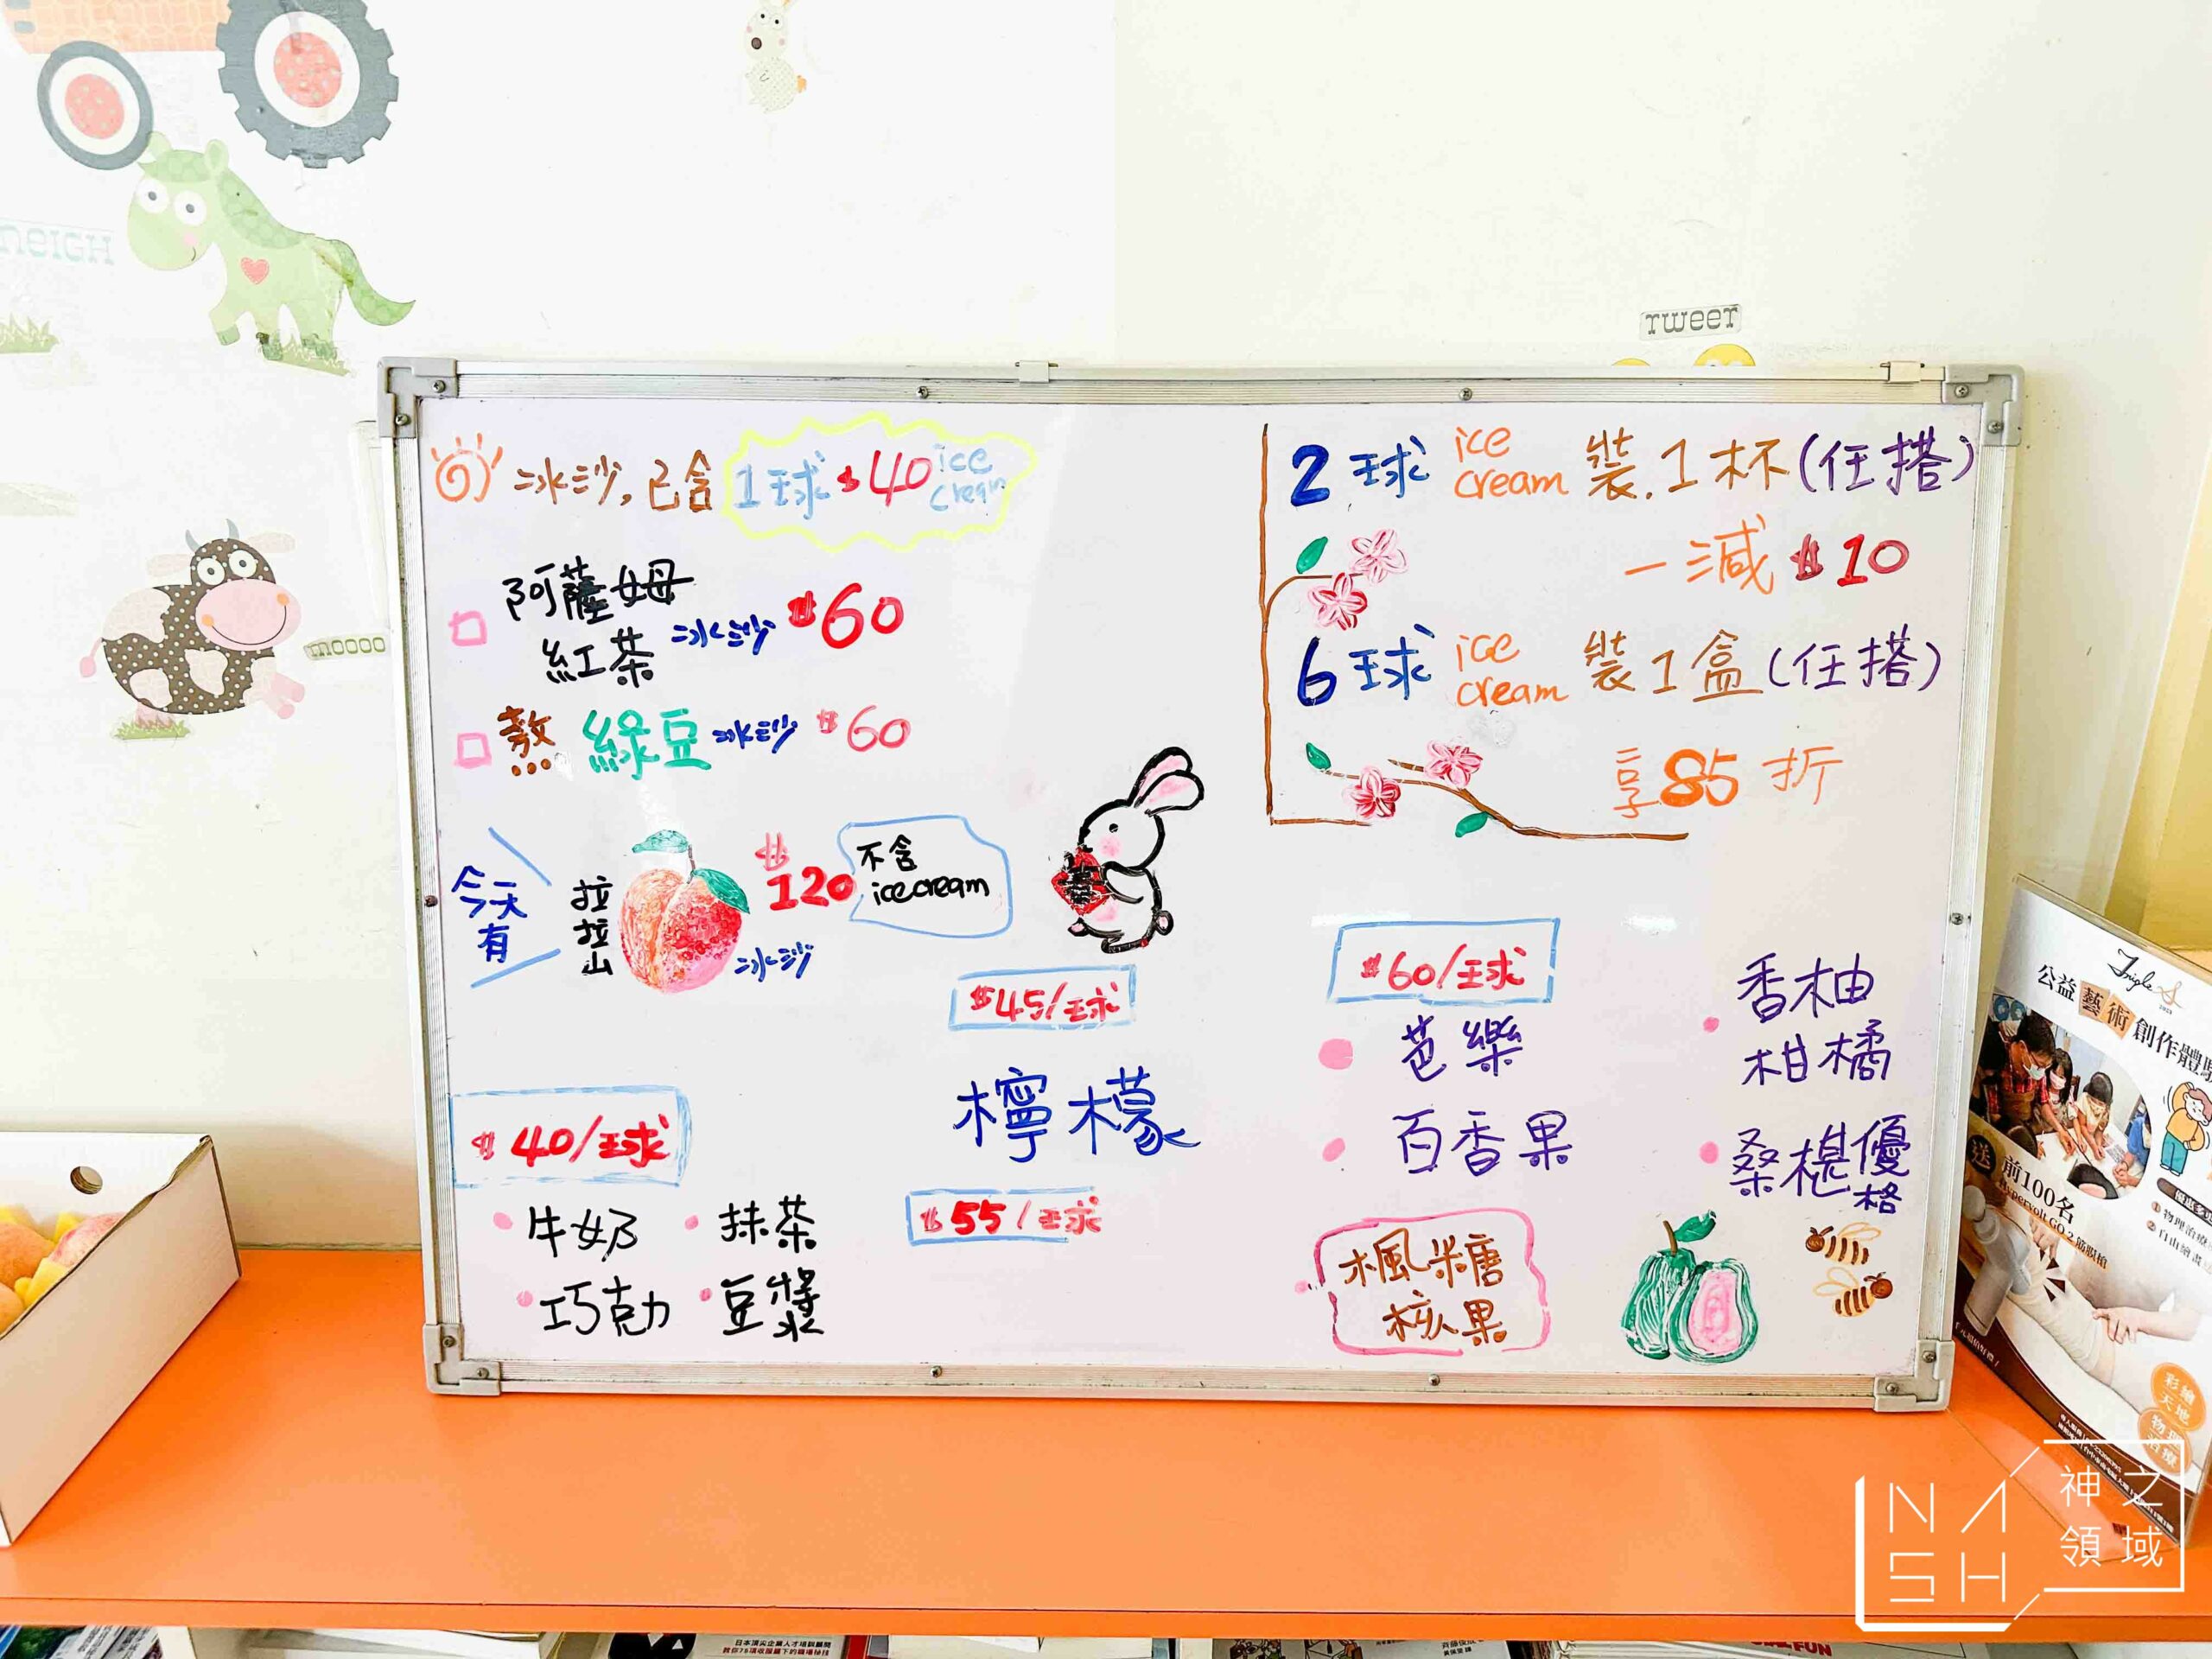 neiGH
mooo
TWEET
冰沙,已含 1球 $40 ice cream
阿薩姆
紅茶 冰沙 $60
熬 綠豆 冰沙 $60
今天有
拉拉山
$120
冰沙
不含
ice cream
$40/球
牛奶
抹茶
巧克力
豆漿
$45/球
檸檬
$55/球
2球 ice cream 裝.1杯(任搭)
一減 $10
6球 ice cream 裝1盒(任搭)
享85折
$60/球
芭樂
百香果
楓糖
核果
香柚
柑橘
桑椹優格
春
公益藝術創作體驗
送
前100名
Hypervolt GO 2 筋膜槍
彩繪
天地
物理
治療
日本頂尖企業人才培訓顧問
FUN
NASH
神之
領域